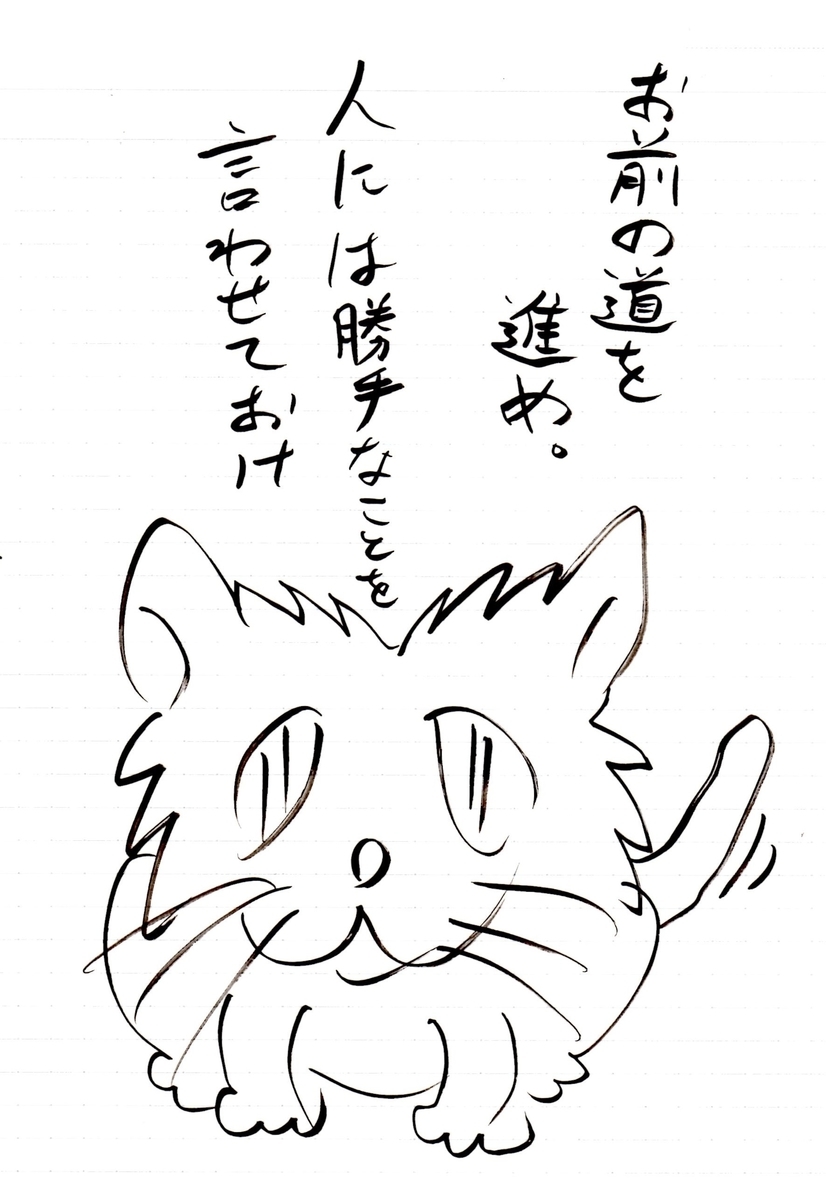 お前の道を
進め。
人には勝手なことを
言わせておけ